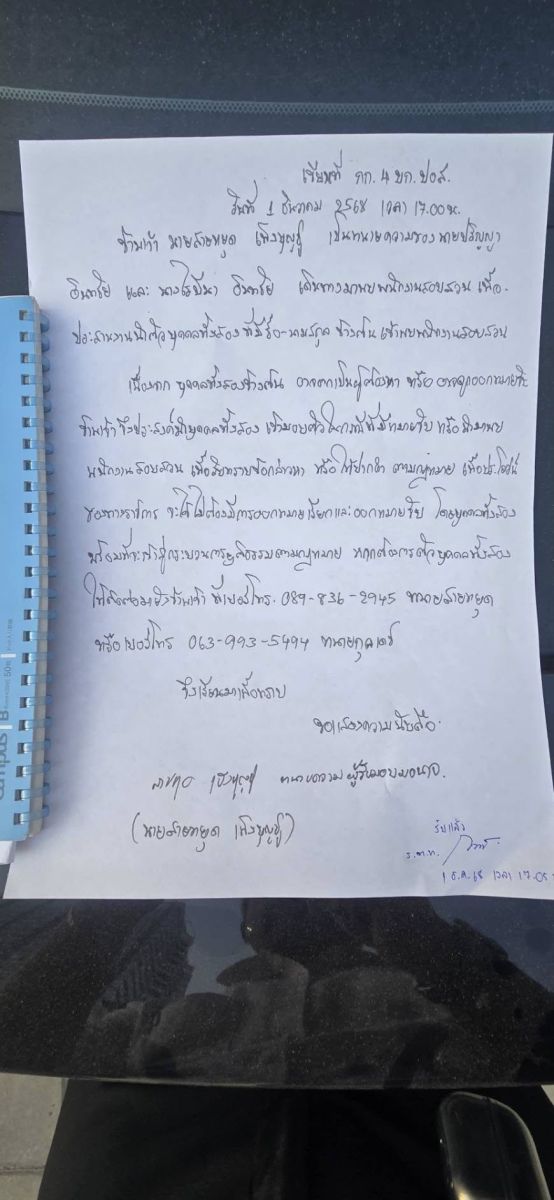 เขียนที่ กก. 4 บก. ปอศ.
วันที่ 1 ธันวาคม 2568 เวลา 17.00 น.
ข้าพเจ้า นายสายหยุด เพ็งบุญชู เป็นทนายความของนายปริญญา
อินทรีย์ และ นาง อินทรีย์ เดินทางมาพบพนักงานสอบสวน เพื่อ
ประสานงานนำตัวบุคคลทั้งสอง ที่มีชื่อ-นามสกุล ข้างต้น เข้าพบพนักงานสอบสวน
เนื่องจาก บุคคลทั้งสองข้างต้น อาจตกเป็นผู้ต้องหา หรือ อาจถูกออกหมายจับ
ข้าพเจ้า จึงประสงค์นำบุคคลทั้งสอง เข้ามอบตัวในกรณีที่มีหมายจับ หรือเข้ามาพบ
พนักงานสอบสวน เพื่อรับทราบข้อกล่าวหา หรือ ให้ปากคำ ตามกฎหมาย เพื่อประโยชน์
ของทางราชการ จะได้ไม่ต้องมีการออกหมายเรียกและออกหมายจับ โดยบุคคลทั้งสอง
พร้อมที่จะเข้าสู่กระบวนการยุติธรรมตามกฎหมาย หากต้องการตัวบุคคลทั้งสอง
ให้ติดต่อมายังข้าพเจ้า ที่เบอร์โทร. 089-836-2945 ทนายสายหยุด
หรือเบอร์โทร 063-993-5494 ทนายกุลเดช
จึงเรียนมาเพื่อทราบ
ขอแสดงความนับถือ
สายหยุด เพ็งบุญชู ทนายความ ผู้รับมอบอำนาจ.
(นายสายหยุด เพ็งบุญชู)
รับแล้ว
ร.ต.ท.
1 ธ.ค. 68 เวลา 17.05
campus